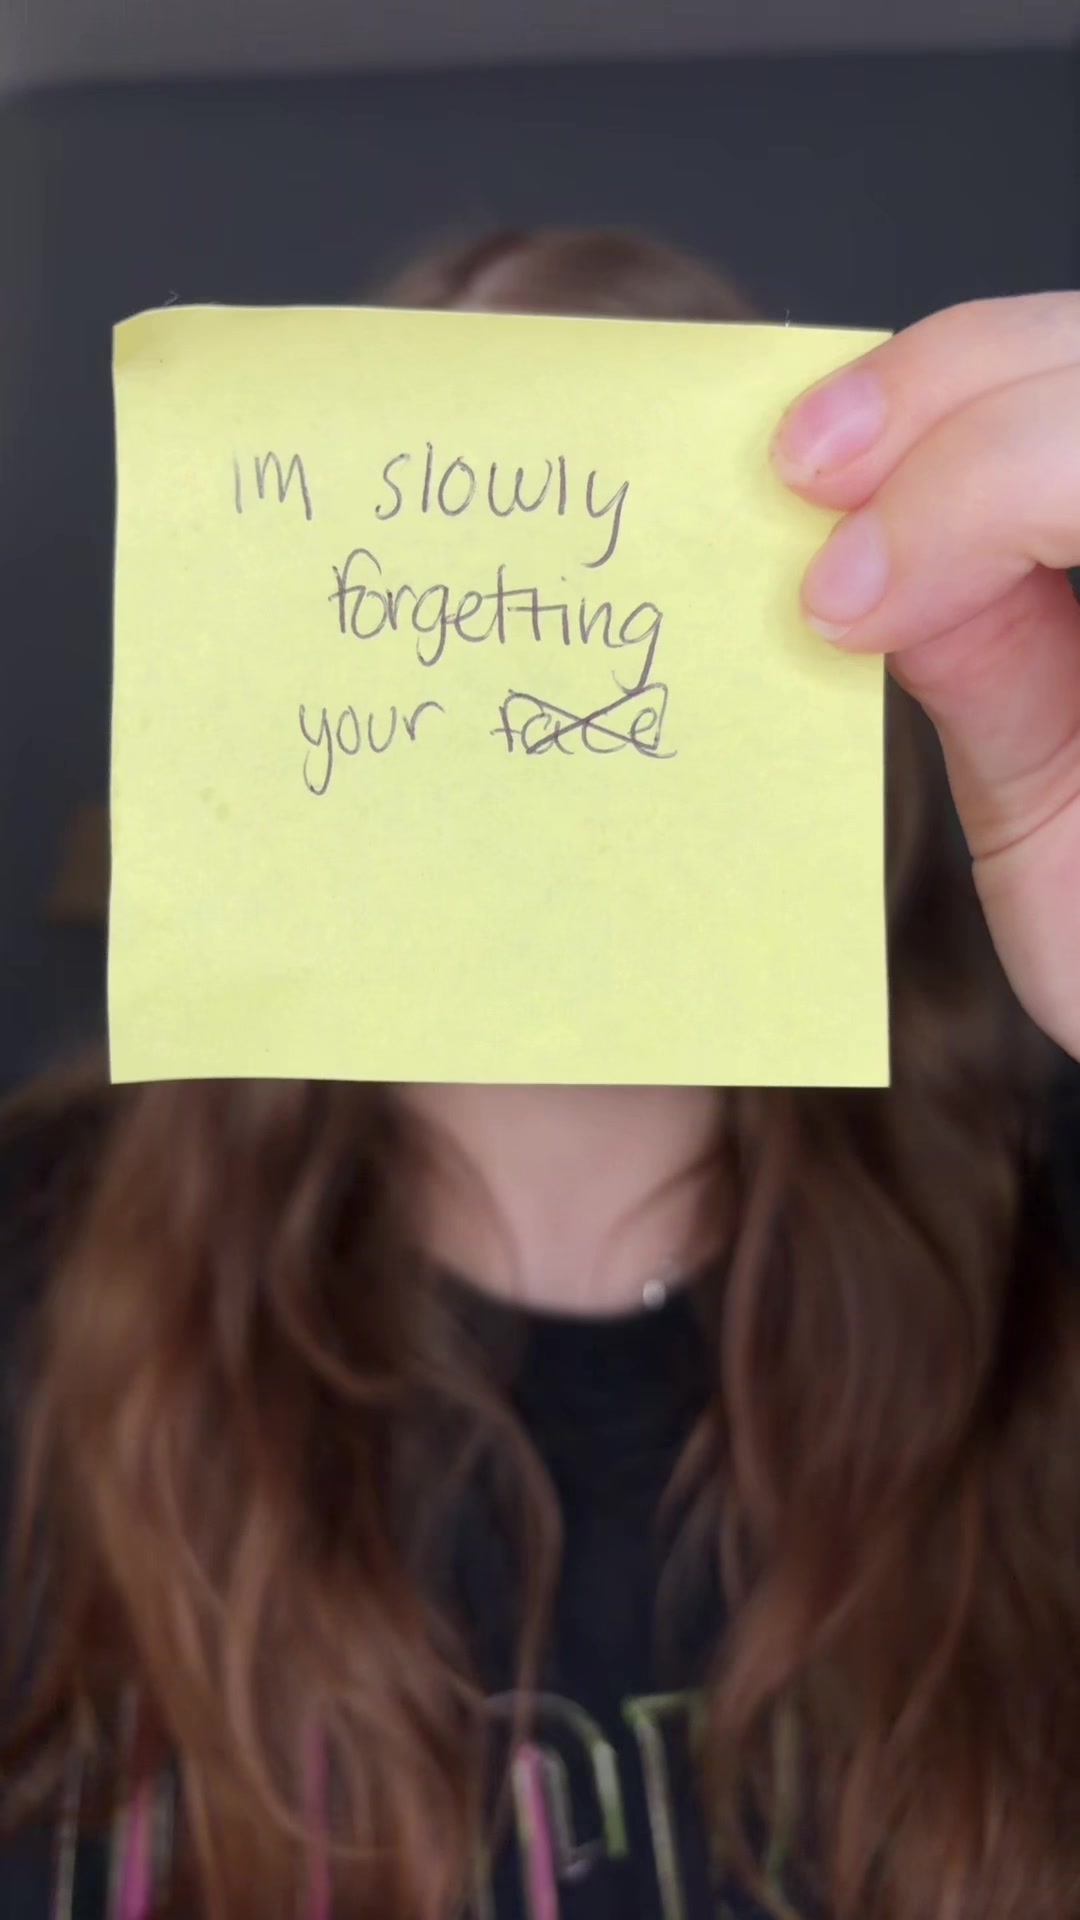 im slowly
forgetting
your face